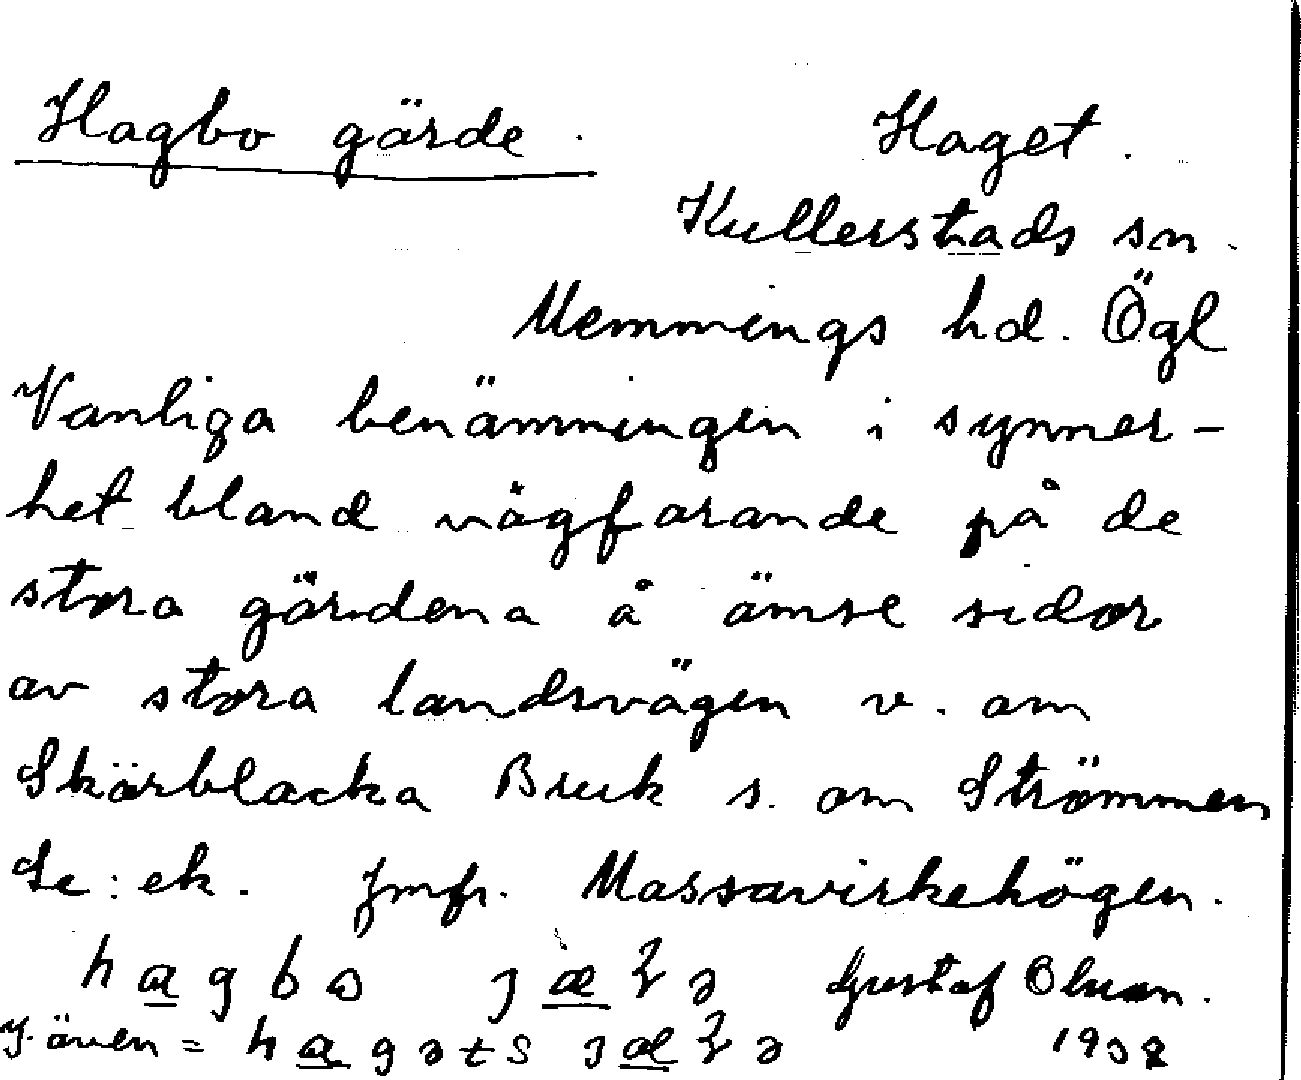 Hagbo gärde. Haget.
Kullerstads sn.
Memmings hd. Ögl
Vanliga benämningen i synner-
het bland vägfarande på de
stora gärdena å ömse sidor
av stora landsvägen v. om
Skärblacka Bruk s. om Strömmen
Se: ek. Jmfr. Massavirkehögen.
hagbo
Gustaf Olson.
även =